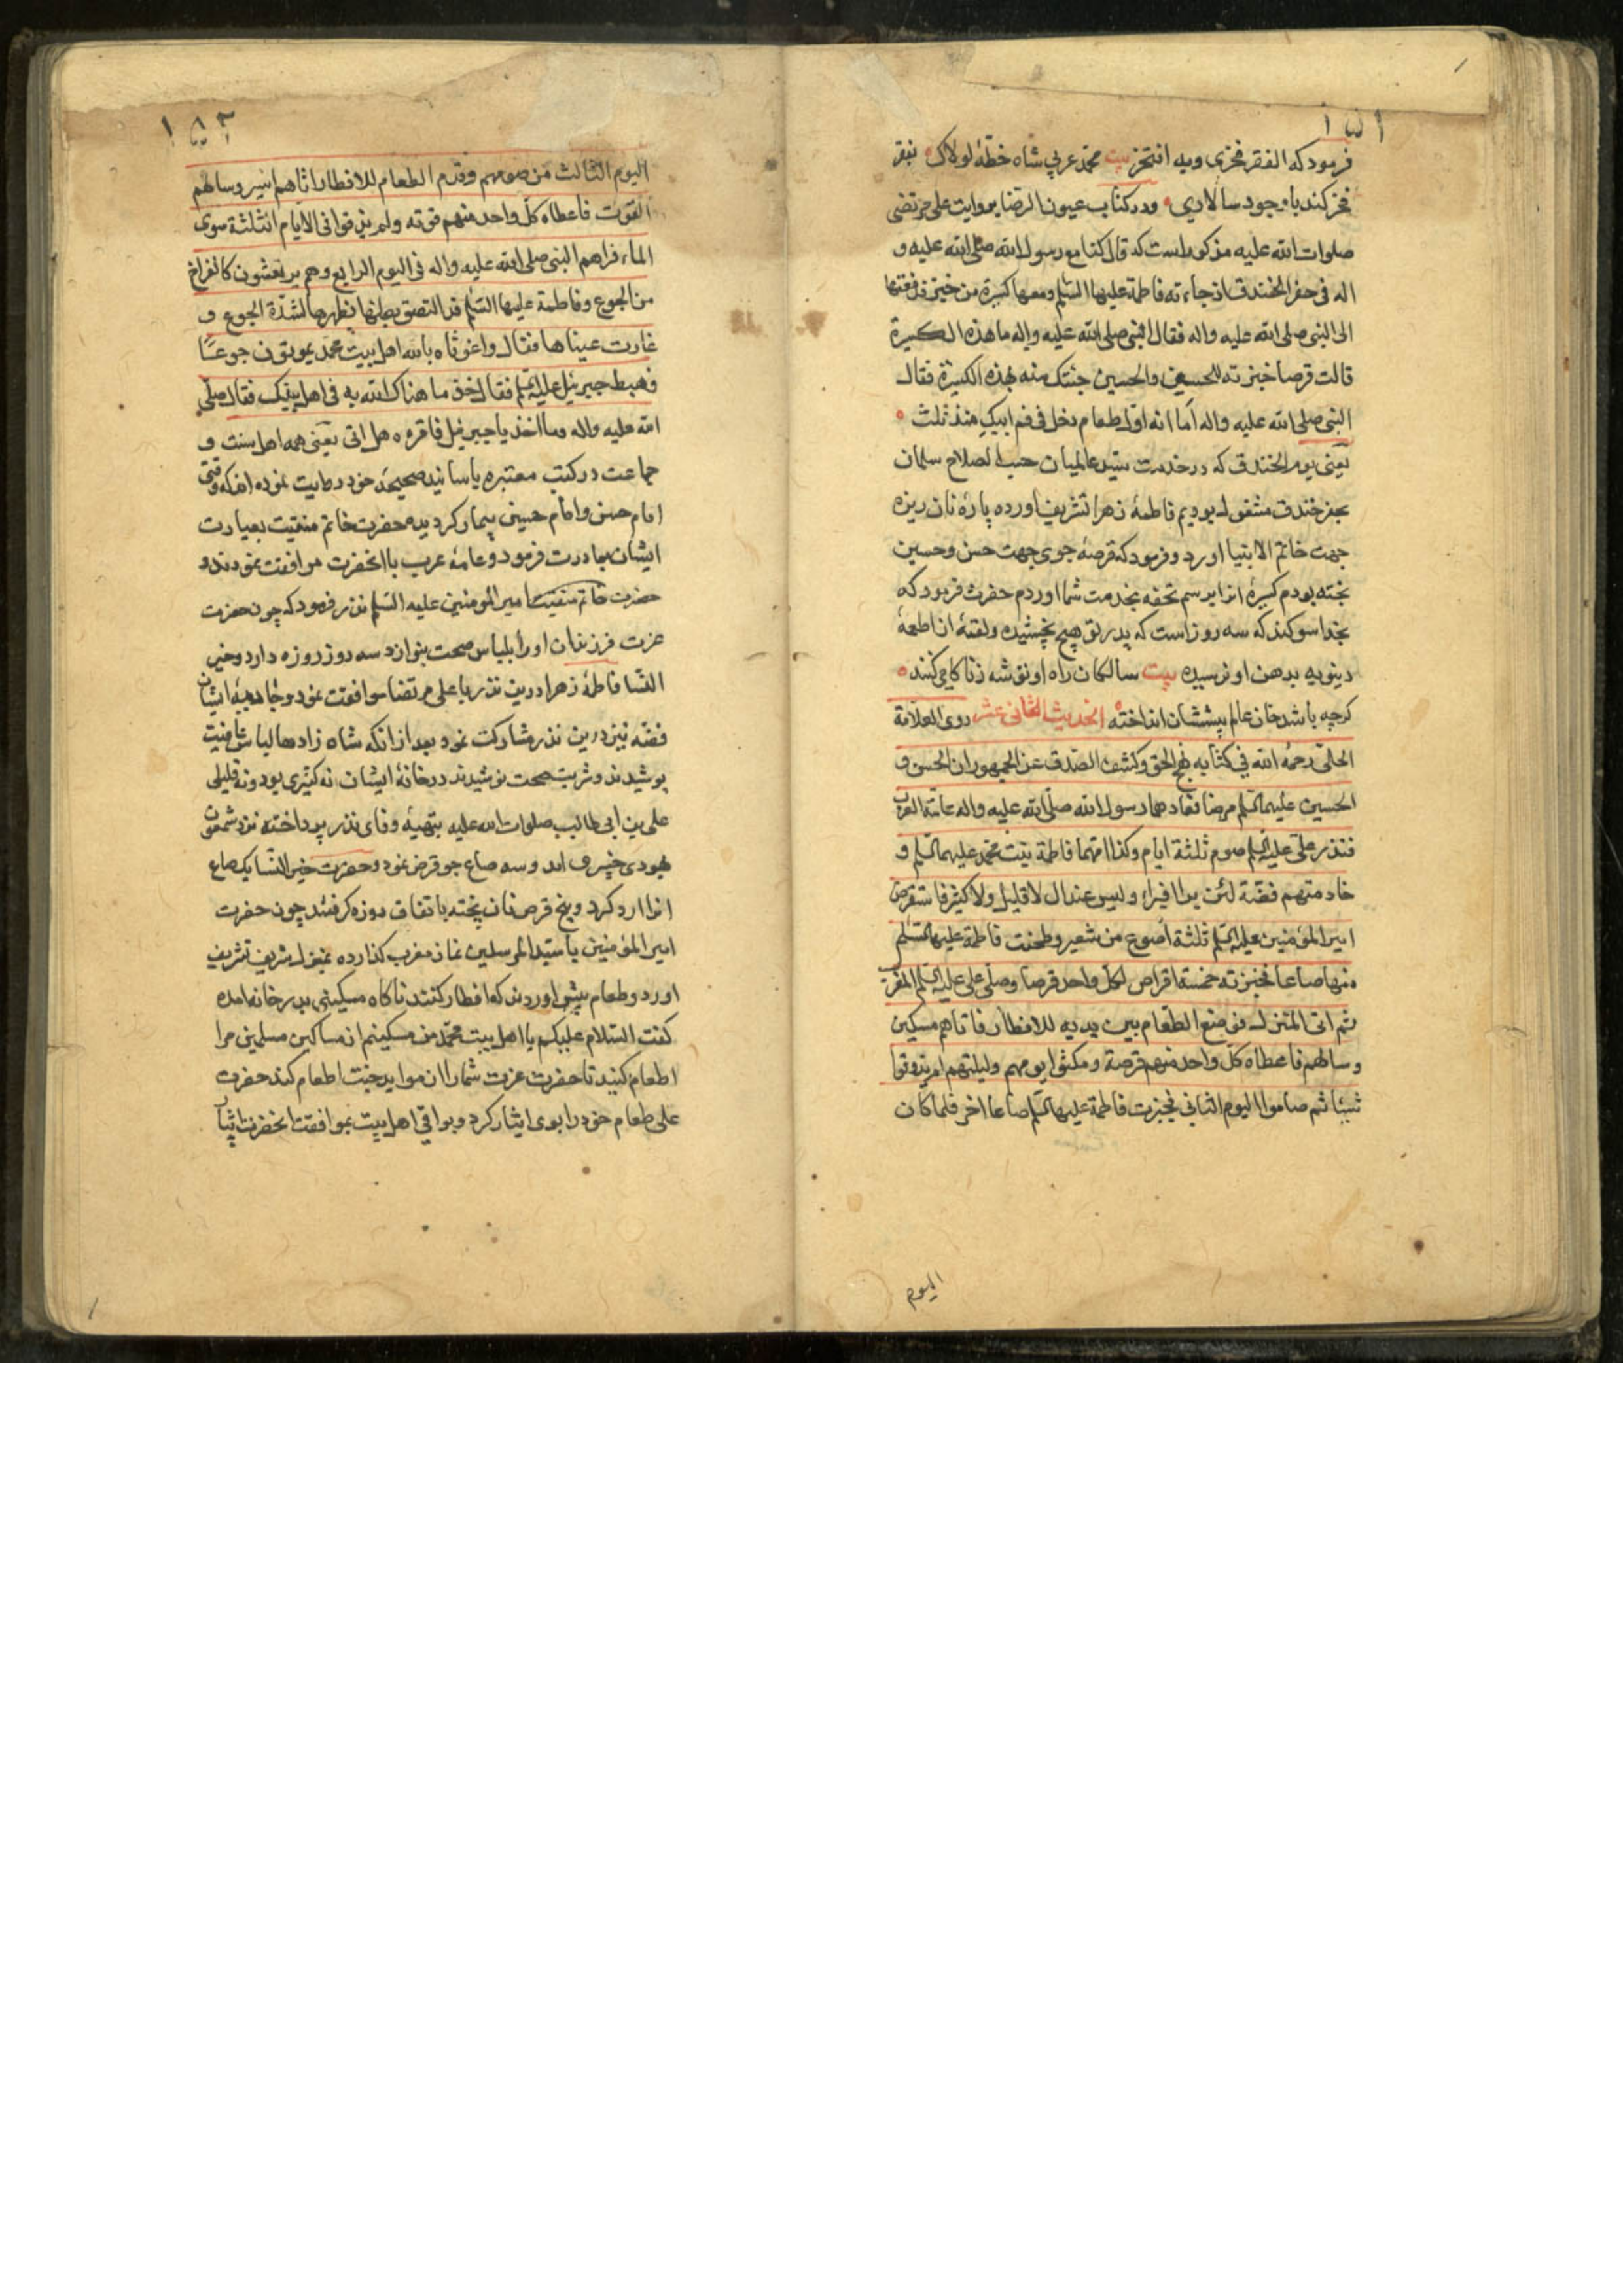 ١٥١
فرمود که الفقر فخری وبه افتخر بیت محمد عربی شاه خطهٔ لولاک بفقر
فخر کند با وجود سالاری ودر کتاب عیون الرضا بروایت علی مرتضی
صلوات الله علیه مذکور است که قال کنا مع رسول الله صلی الله علیه و
اله فی حفر الخندق اذ جاءته فاطمة علیها السلم ومعها کسرة من خبز فدفعتها
الی النبی صلی الله علیه واله فقال النبی صلی الله علیه واله ما هذه الکسرة
قالت قرصا خبزته للحسن والحسین جئتک منه بهذه الکسرة فقال
النبی صلی الله علیه واله اما انه اول طعام دخل فی فم ابیک منذ ثلث
یعنی یوم الخندق که در خدمت سید عالمیان حسب الصلاح سلمان
بحفر خندق مشغول بودیم فاطمهٔ زهرا تشریف اورده پارهٔ نان ریزه
جهت خاتم الانبیا اورد وفرمود که قرصهٔ جوی جهت حسن وحسین
پخته بودم کسرهٔ ازا برسم تحفه بخدمت شما اوردم حضرت فرمود که
بخدا سوکند که سه روز است که پدر تو هیچ نچشیده ولقمهٔ از اطعمهٔ
دنیویه بدهن او نرسیده بیت سالکان راه او توشه زناکامی کنند
کرچه باشد خان عالم پیششان انداخته الحدیث الثانی عشر روی العلامة
الحلی رحمه الله فی کتابه نهج الحق وکشف الصدق عن الجمهور ان الحسن و
الحسین علیهما السلم مرضا فعادهما رسول الله صلی الله علیه واله عامة العرب
فنذر علی علیه السلم صوم ثلثة ایام وکذا امهما فاطمة بنت محمد علیهما السلم و
خادمتهم فضة لئن برا فبرا ولیس عند ال لا قلیل ولا کثیر فاستقرض
امیر المؤمنین علیه السلم ثلثة اصوع من شعیر وطحنت فاطمة علیها السلم
منها صاعا فخبزته خمسة اقراص لکل واحد قرصا وصلی علی علیه السلم المغرب
ثم اتی المنزل فوضع الطعام بین یدیه للافطار فاتاهم مسکین
وسالهم فاعطاه کل واحد منهم قرصة ومکثوا یومهم ولیلتهم لم یذوقوا
شیئا ثم صاموا الیوم الثانی فخبزت فاطمة علیها السلم صاعا اخر فلما کان
الیوم
١٥٢
الیوم الثالث من صومهم وقدم الطعام للافطار اتاهم اسیر وسالهم
القوت فاعطاه کل واحد منهم قوته ولم یذوقوا فی الایام الثلثة سوی
الماء فراهم النبی صلی الله علیه واله فی الیوم الرابع وهم یرتعشون کالفراخ
من الجوع وفاطمة علیها السلم قد التصق بطنها بظهرها لشدة الجوع و
غارت عیناها فقال واغوثاه بالله اهل بیت محمد یموتون جوعا
فهبط جبرئیل علیه السلم فقال خذ ما هناک الله به فی اهل بیتک فقال صلی
الله علیه واله وما اخذ یا جبرئیل فاقره هل اتی یعنی همه اهل سنت و
جماعت در کتب معتبره باسانید صحیحهٔ خود روایت نموده اند که وقتی
امام حسن وامام حسین بیمار کردیده حضرت خاتم منقبت بعیادت
ایشان مبادرت فرمود وعامهٔ عرب با انحضرت موافقت نمودند و
حضرت خاتم منقبت امیر المومنین علیه السلم نذر فرمود که چون حضرت
عزت فرزندان او را بلباس صحت بنوازد سه روز روزه دارد وخیر
النسا فاطمهٔ زهرا درین نذر با علی مرتضا موافقت نمود وخادمهٔ ایشان
فضه نیز درین نذر مشارکت نمود بعد از انکه شاه زادها لباس عافیت
پوشیدند وشربت صحت نوشیدند در خانهٔ ایشان نه کثیری بود ونه قلیلی
علی بن ابی طالب صلوات الله علیه بتهیهٔ وفای نذر پرداخته نزد شمعون
یهودی خیبری امد وسه صاع جو قرض نمود وحضرت خیر النسا یک صاع
ازا ارد کرد وپنج قرص نان پخته باتفاق روزه کرفتند چون حضرت
امیر المؤمنین با سید المرسلین نماز مغرب کذارده بمنزل شریف تشریف
اورد وطعام پیش اوردند که افطار کنند ناکاه مسکینی بدر خانه امده
کفت السلام علیکم یا اهل بیت محمد من مسکینم از مساکین مسلمین مرا
اطعام کنید تا حضرت عزت شما را از مواید جنت اطعام کند حضرت
علی طعام خود را بوی ایثار کرد وبواقی اهل بیت بموافقت انحضرت ایثار